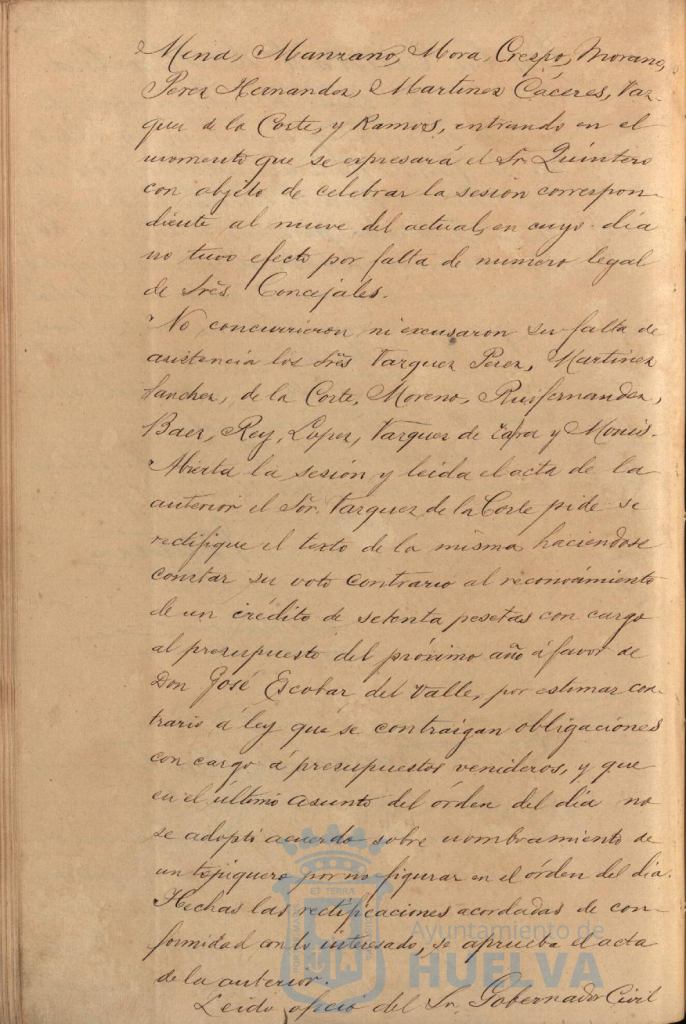 Mena, Manzano, Mora, Crespo, Morano,
Perez Hernandez, Martinez Cáceres, Vaz-
quez de la Corte, y Ramos, entrando en el
momento que se expresará el Sr. Quintero
con objeto de celebrar la sesión correspon-
diente al nueve del actual, en cuyo dia
no tuvo efecto por falta de número legal
de Srẽs. Concejales.
No concurrieron ni excusaron su falta de
asistencia los Srẽs Vazquez Perez, Martinez
Sanchez, de la Corte, Moreno, Ruifernandez,
Baez, Rey, Lopez, Vazquez de Zafra y Monís.
Abierta la sesión y leida el acta de la
anterior el Sr. Vazquez de la Corte pide se
rectifique el texto de la misma haciendose
constar su voto contrario al reconocimiento
de un crédito de setenta pesetas con cargo
al presupuesto del próximo año á favor de
Don José Escobar del Valle, por estimar con-
trario á ley que se contraigan obligaciones
con cargo á presupuestos venideros, y que
en el último asunto del órden del dia no
se adoptó acuerdo sobre nombramiento de
un por no figurar en el órden del dia.
Hechas las rectificaciones acordadas de con-
formidad con lo interesado, se aprueba el acta
de la anterior.
Leido oficio del Sr. Gobernador Civil
Ayuntamiento de
HUELVA